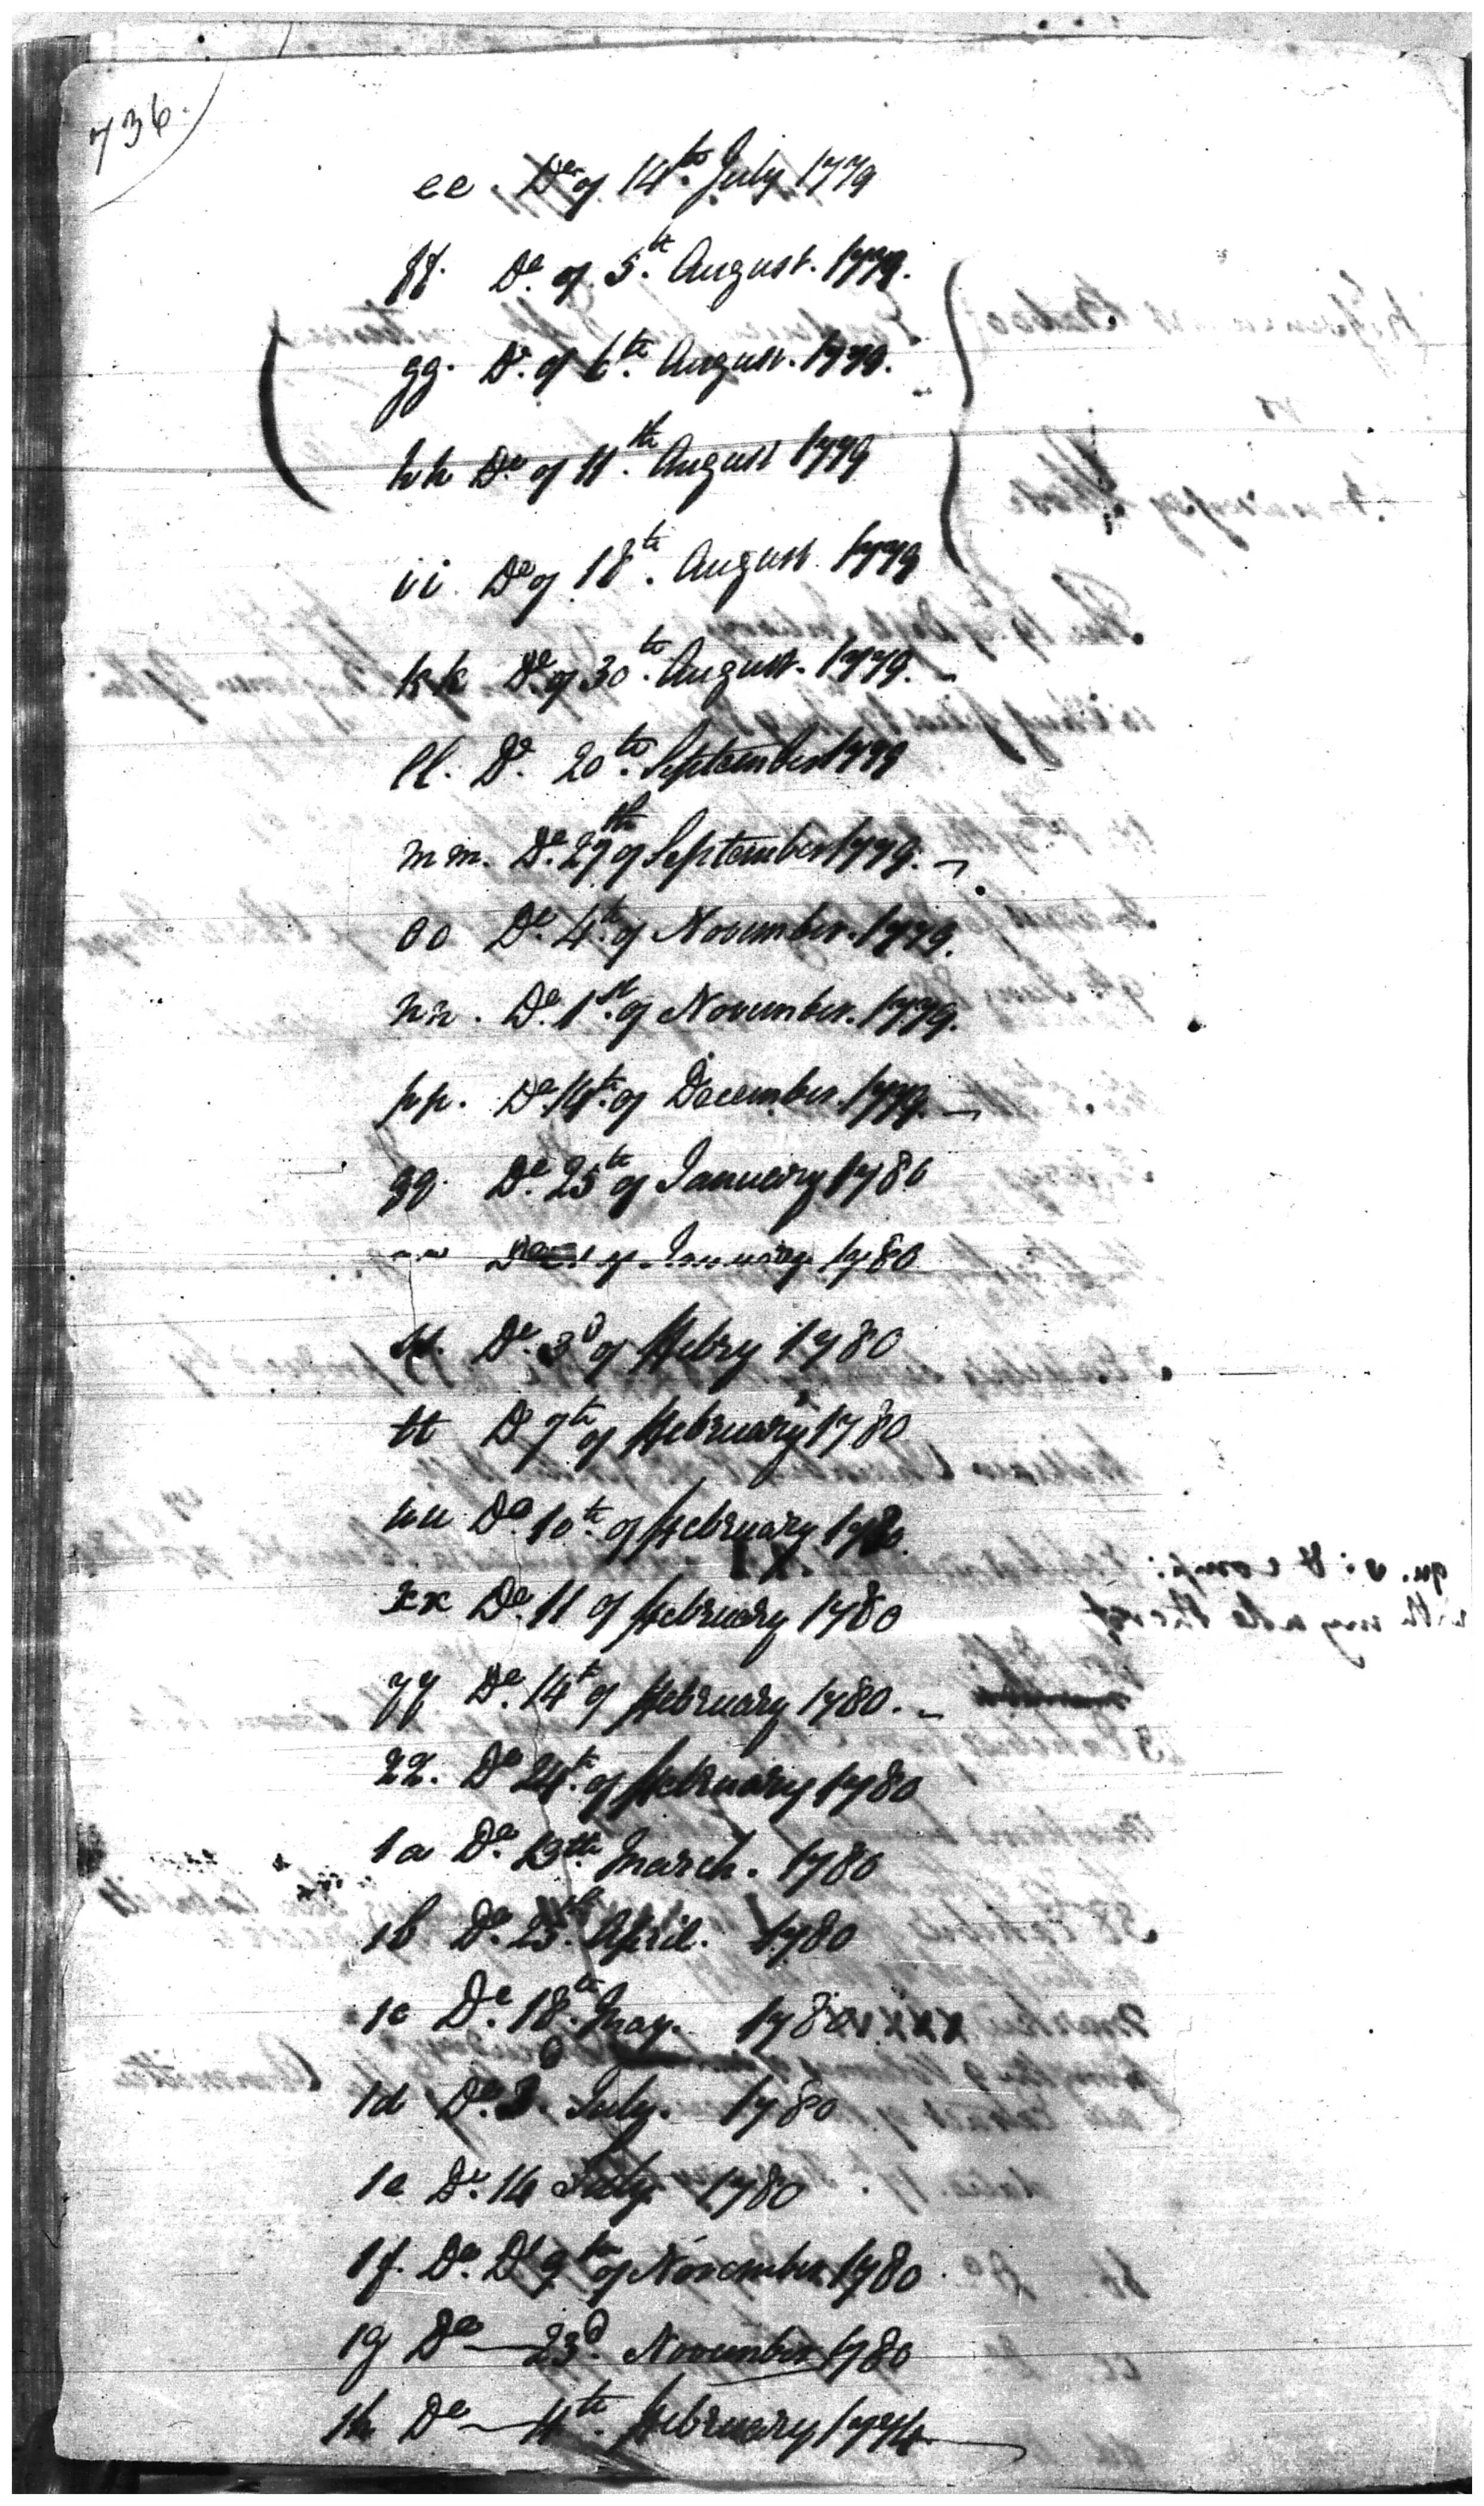 736.
ee. Do of 14th July 1779
ff. Do. of. 5th. August. 1779.
gg. Do. of 6th. August. 1779.
hh Do of 11th. August 1779
ii. Do of 18th. August. 1779
kk Do. of 30th. August. 1779.
ll. Do. 20th. September 1779
mm. Do. 27th of September 1779.
oo Do. 4th. of November. 1779.
nn. Do. 1st. of November. 1779.
pp. Do. 14th. of December. 1779.
qq. Do. 25th of January 1780
Do of January 1780
ss. Do. 3d of Febry 1780
tt Do 7th of February 1780
uu Do. 10th. of February 1780.
xx Do. 11 of February 1780
yy Do. 14th of February 1780.
zz. Do 24th. of February 1780
1a Do. 13th March. 1780
1b Do. 25th. April. 1780
1c Do. 18th. May. 1780
1d Do. 3d. July. 1780
1e Do. 14 July 1780
1f. Do. Do 9th of November 1780.
1g Do 23d. November 1780
1h Do 4th. February 1774